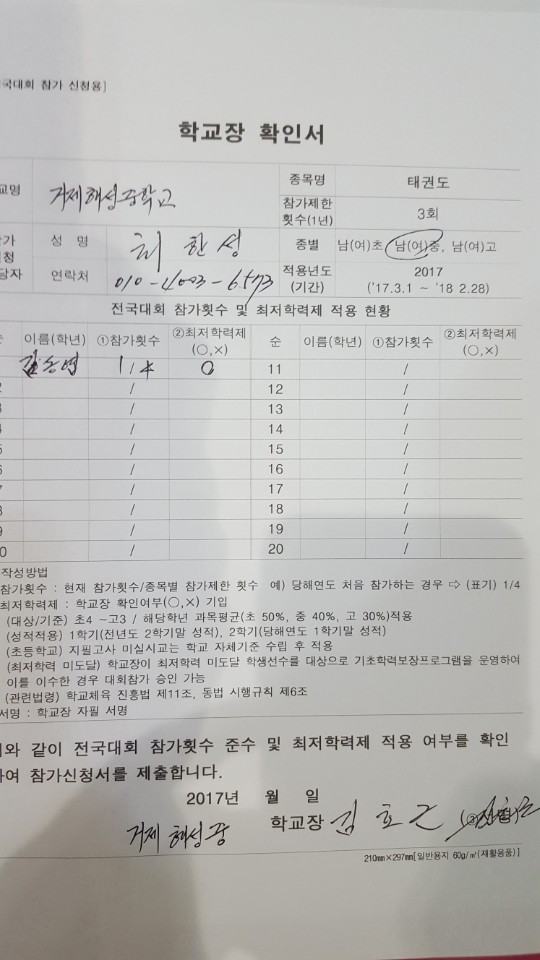 국대회 참가 신청용]
학교장 확인서
교명 거제해성중학교 종목명 태권도
참가제한 횟수(1년) 3회
가 청 당자 성 명 최한성 종별 남(여)초, 남(여)중, 남(여)고
연락처 010-4003-6573 적용년도 (기간) 2017 ('17.3.1 ~ '18 2.28)
전국대회 참가횟수 및 최저학력제 적용 현황
순 이름(학년) ①참가횟수 ②최저학력제 (○,×) 순 이름(학년) ①참가횟수 ②최저학력제 (○,×)
1/4 ○ 11 /
2 / 12 /
3 / 13 /
4 / 14 /
5 / 15 /
6 / 16 /
7 / 17 /
8 / 18 /
9 / 19 /
0 / 20 /
작성방법
참가횟수 : 현재 참가횟수/종목별 참가제한 횟수 예) 당해연도 처음 참가하는 경우 ⇨ (표기) 1/4
최저학력제 : 학교장 확인여부(○,×) 기입
(대상/기준) 초4 ~고3 / 해당학년 과목평균(초 50%, 중 40%, 고 30%)적용
(성적적용) 1학기(전년도 2학기말 성적), 2학기(당해연도 1학기말 성적)
(초등학교) 지필고사 미실시교는 학교 자체기준 수립 후 적용
(최저학력 미도달) 학교장이 최저학력 미도달 학생선수를 대상으로 기초학력보장프로그램을 운영하여
이를 이수한 경우 대회참가 승인 가능
(관련법령) 학교체육 진흥법 제11조, 동법 시행규칙 제6조
서명 : 학교장 자필 서명
위와 같이 전국대회 참가횟수 준수 및 최저학력제 적용 여부를 확인
하여 참가신청서를 제출합니다.
2017년 월 일
거제해성중 학교장 김호근
210㎜×297㎜[일반용지 60g/㎡(재활용품)]